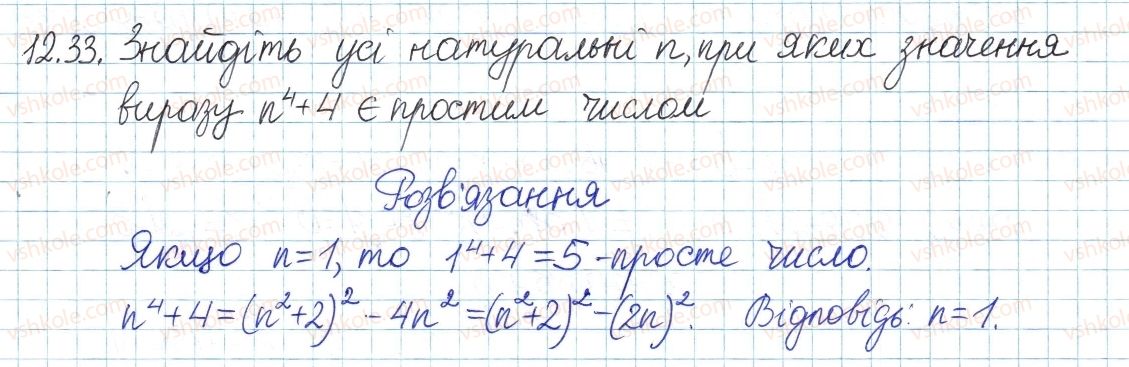 12.33. Знайдіть усі натуральні n, при яких значення
виразу n⁴+4 є простим числом
Розв'язання
Якщо n=1, то 1⁴+4=5 - просте число.
n⁴+4=(n²+2)²-4n²=(n²+2)²-(2n)². Відповідь: n=1.
vshkole.com